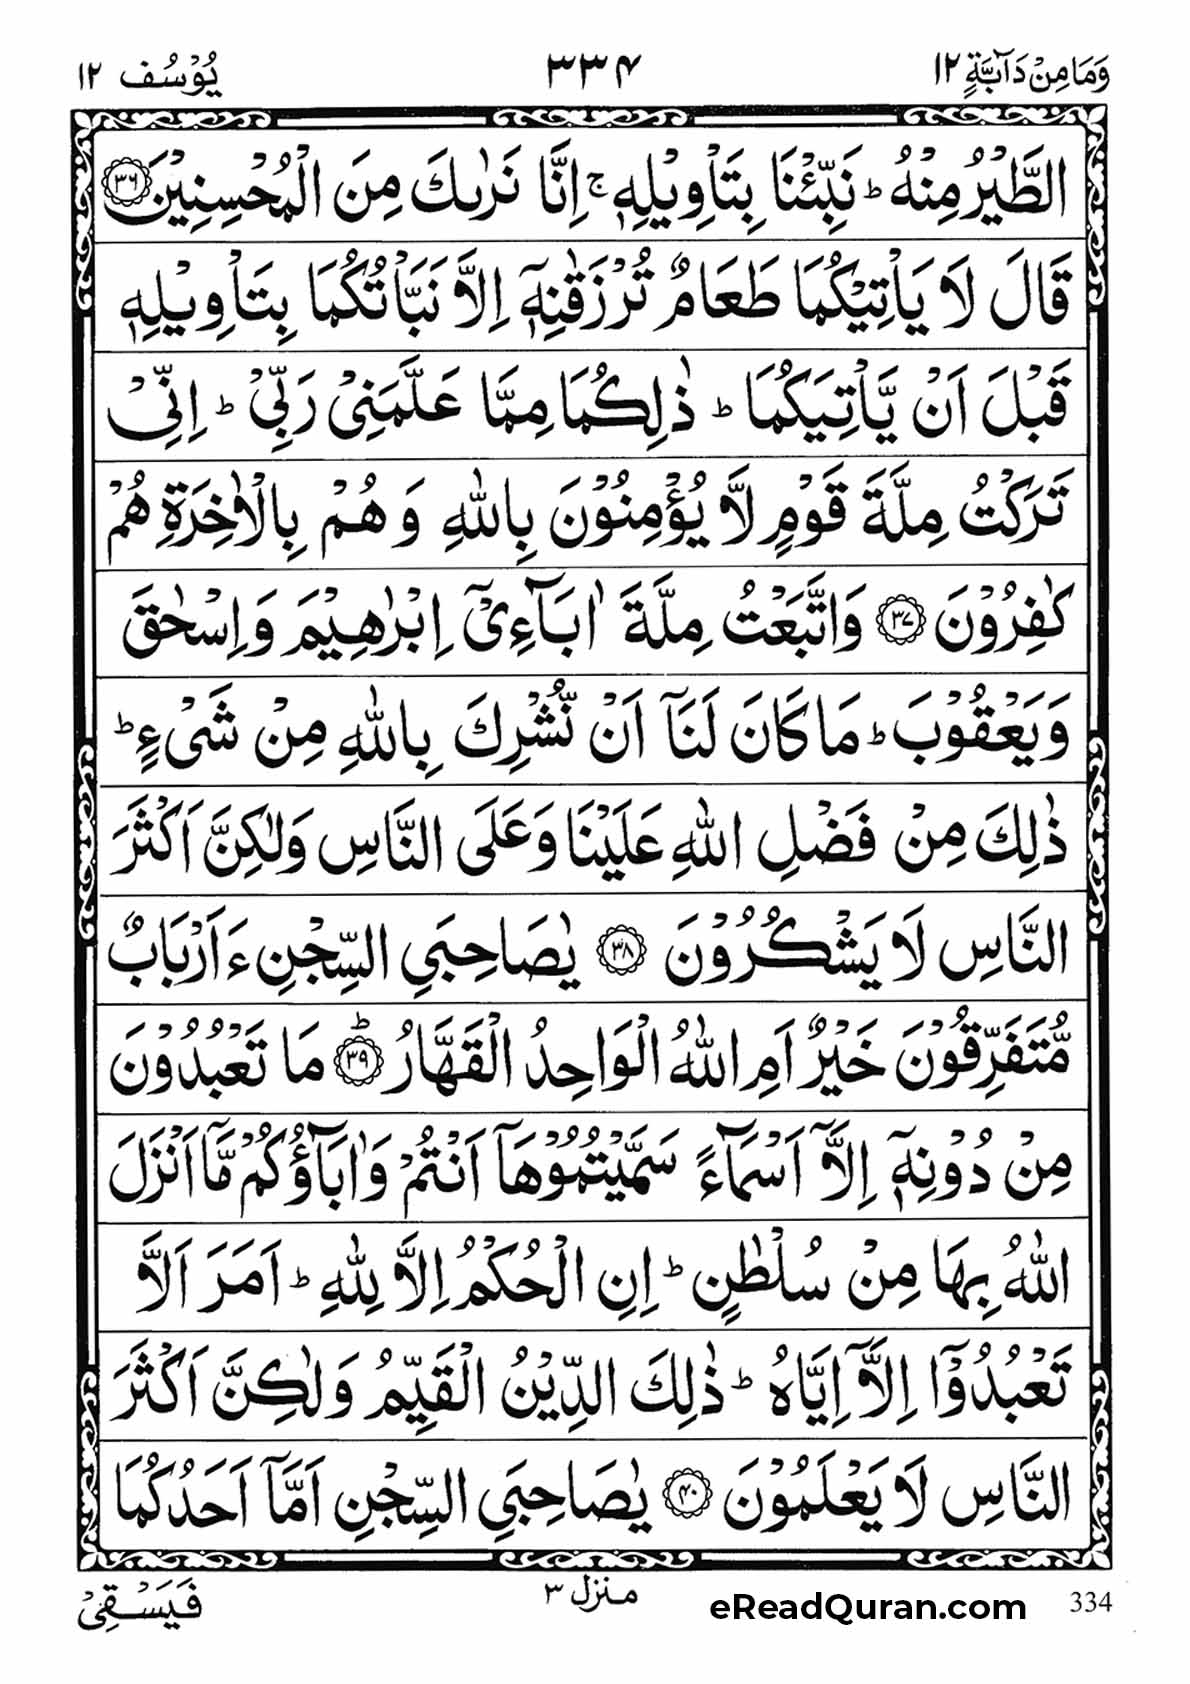 وَمَا مِنْ دَآبَّةٍ ١٢ ٣٣۴ يُوْسُف ١٢
الطَّيْرُ مِنْهُ ؕ نَبِّئْنَا بِتَاْوِيْلِهٖ ۚ اِنَّا نَرٰىكَ مِنَ الْمُحْسِنِيْنَ ﴿٣٦﴾
قَالَ لَا يَاْتِيْكُمَا طَعَامٌ تُرْزَقٰنِهٖۤ اِلَّا نَبَّاْتُكُمَا بِتَاْوِيْلِهٖ
قَبْلَ اَنْ يَّاْتِيَكُمَا ؕ ذٰلِكُمَا مِمَّا عَلَّمَنِيْ رَبِّيْ ؕ اِنِّيْ
تَرَكْتُ مِلَّةَ قَوْمٍ لَّا يُؤْمِنُوْنَ بِاللّٰهِ وَهُمْ بِالْاٰخِرَةِ هُمْ
كٰفِرُوْنَ ﴿٣٧﴾ وَاتَّبَعْتُ مِلَّةَ اٰبَآءِيْۤ اِبْرٰهِيْمَ وَاِسْحٰقَ
وَيَعْقُوْبَ ؕ مَا كَانَ لَنَاۤ اَنْ نُّشْرِكَ بِاللّٰهِ مِنْ شَيْءٍ ؕ
ذٰلِكَ مِنْ فَضْلِ اللّٰهِ عَلَيْنَا وَعَلَى النَّاسِ وَلٰكِنَّ اَكْثَرَ
النَّاسِ لَا يَشْكُرُوْنَ ﴿٣٨﴾ يٰصَاحِبَيِ السِّجْنِ ءَاَرْبَابٌ
مُّتَفَرِّقُوْنَ خَيْرٌ اَمِ اللّٰهُ الْوَاحِدُ الْقَهَّارُ ﴿٣٩﴾ؕ مَا تَعْبُدُوْنَ
مِنْ دُوْنِهٖۤ اِلَّاۤ اَسْمَآءً سَمَّيْتُمُوْهَاۤ اَنْتُمْ وَاٰبَآؤُكُمْ مَّاۤ اَنْزَلَ
اللّٰهُ بِهَا مِنْ سُلْطٰنٍ ؕ اِنِ الْحُكْمُ اِلَّا لِلّٰهِ ؕ اَمَرَ اَلَّا
تَعْبُدُوْۤا اِلَّاۤ اِيَّاهُ ؕ ذٰلِكَ الدِّيْنُ الْقَيِّمُ وَلٰكِنَّ اَكْثَرَ
النَّاسِ لَا يَعْلَمُوْنَ ﴿۴٠﴾ يٰصَاحِبَيِ السِّجْنِ اَمَّاۤ اَحَدُكُمَا
فَيَسْقِيْ منزل ٣ eReadQuran.com 334